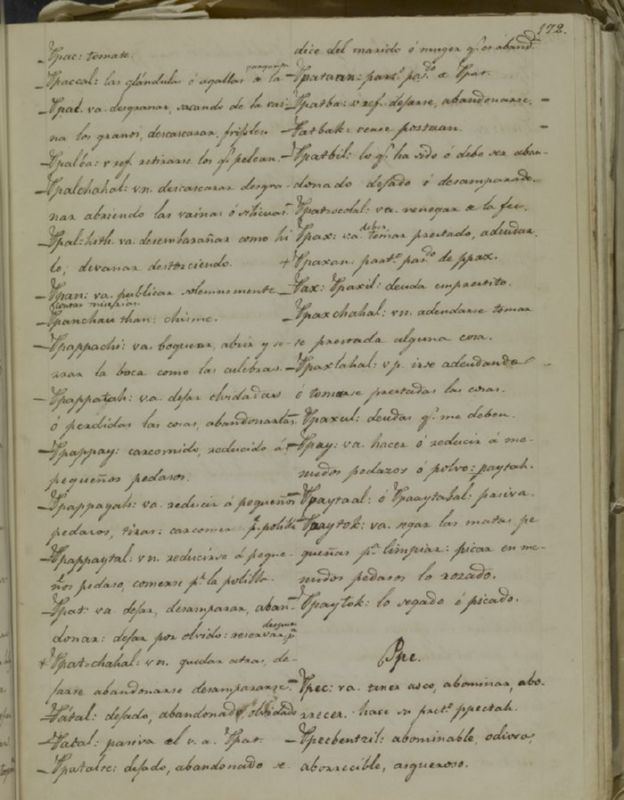 172.
Ppac: tomate.
Ppaccal: las glándula ó agallas de la garganta
Ppal. va. desgranar, sacando de la vai-
na los granos, descascarar, frisoles
Ppalba: v ref. retirarse los qe. pelean.
Ppalchahal: vn. descascarar desgra-
nar abriendo las vainas ó silicuas
Ppal: hith. va. desembarañar como hi
lo, devanar destorciendo.
Ppan: va. publicar solemnemente
Ppanchau than: chisme.
Ppappachi: va. boquear, abrir y se-
rrar la boca como las culebras.
Ppappatah: va. dejar olvidadas
ó perdidas las cosas, abandonarlas
Ppappay: carcomido, reducido á
pequeños pedasos.
Ppappayah: va. reducir á pequeños
pedasos, tiras: carcomer pr. polilla
Ppappaytal: vn. reducirse á peque-
ños pedaso, comerse pr. la polilla.
Ppat: va. dejar, desamparar, aban-
donar: dejar por olvido: reservar pa. despues
Ppat-chahal: vn. quedar atras, de-
jarse abandonarse desampararse
Patal: dejado, abandonado olvidado
Patal: pasiva del v. a. Ppat.
Ppatalec: dejado, abandonado se
dice del marido ó muger qe. es aband
Ppataan: part. pasdo. de Ppat.
Ppatba: v ref. dejarse, abandonarse.
Patbak: vease postaan.
Ppatbil: lo qe. ha sido ó debe ser aban-
donado dejado ó desamparado.
Ppatocolal: va. renegar de la fee.
Ppax: va. deber tomar prestado, adeudar
Ppaxan. part. pasdo. de ppax.
Pax: Ppaxil: deuda emprestito.
Ppaxchahal: vn. adeudarse tomar
se prestada alguna cosa.
Ppaxlahal: v p. irse adeudando
ó tomarse prestadas las cosas.
Ppaxul: deudas qe. me deben.
Ppay: va. hacer ó reducir á me-
nudos pedazos ó polvo: paytah.
Ppaytaal: ó Ppaaytabal: pasiva.
Ppaytok: va. segar las matas pe
queñas pa. limpiar: picar en me-
nudos pedasos lo rozado.
Ppaytok: lo segado ó picado.
Ppe.
Ppec: va. tener asco, abominar, abo-
rrecer. hace su pacto. ppectah.
Ppecbentzil: abominable, odioso
aborrecible, asqueroso.